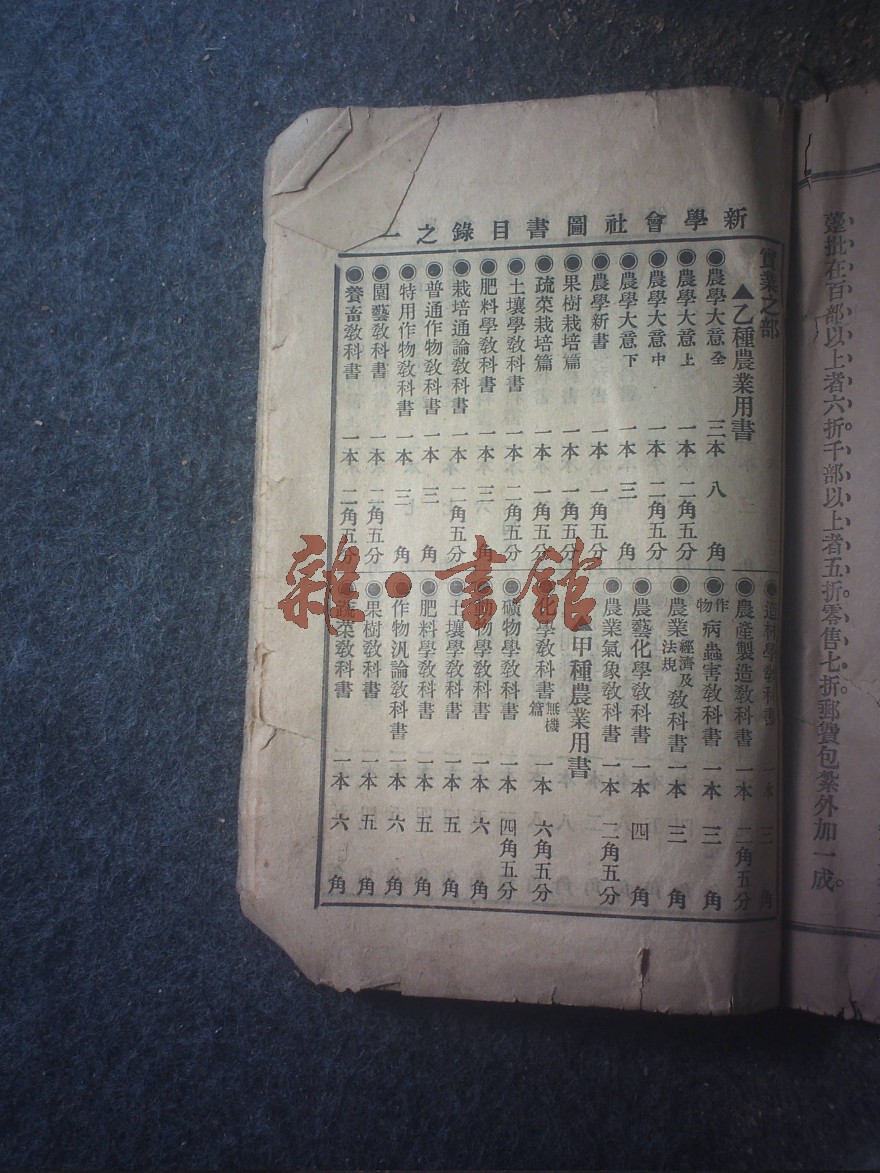 躉批在百部以上者六折千部以上者五折零售七折郵費包紮外加一成。
新學會社圖書目錄之一
實業之部
▲乙種農業用書
◉農學大意全 三本 八角
◉農學大意上 一本 二角五分
◉農學大意中 一本 二角五分
◉農學大意下 一本 三角
◉農學新書 一本 一角五分
◉果樹栽培篇 一本 一角五分
◉蔬菜栽培篇 一本 一角五分
◉土壤學教科書 一本 二角五分
◉肥料學教科書 一本 三角
◉栽培通論教科書 一本 二角五分
◉普通作物教科書 一本 三角
◉特用作物教科書 一本 三角
◉園藝教科書 一本 二角五分
◉養畜教科書 一本 二角五分
◉造林學教科書 一本 三角
◉農產製造教科書 一本 二角五分
◉作物病蟲害教科書 一本 三角
◉農業經濟及法規教科書 一本 三角
◉農藝化學教科書 一本 四角
◉農業氣象教科書 一本 二角五分
▲甲種農業用書
◉化學教科書無機篇 一本 六角五分
◉礦物學教科書 一本 四角五分
物學教科書 一本 六角
◉土壤學教科書 一本 五角
◉肥料學教科書 一本 五角
◉作物汎論教科書 一本 六角
◉果樹教科書 一本 五角
◉蔬菜教科書 一本 六角
雜·書館